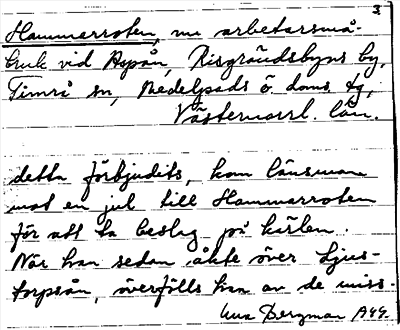 3
Hammarroten, nu arbetarsmå-
bruk vid Aspån, Risgrändsbyns by,
Timrå sn, Medelpads ö. doms. tg,
Västernorrl. län.
detta förbjudits, kom länsman
mot en jul till Hammarroten
för att ta beslag på kärlen.
När han sedan åkte över Ljus-
torpsån, överfölls han av de miss-
Bergman